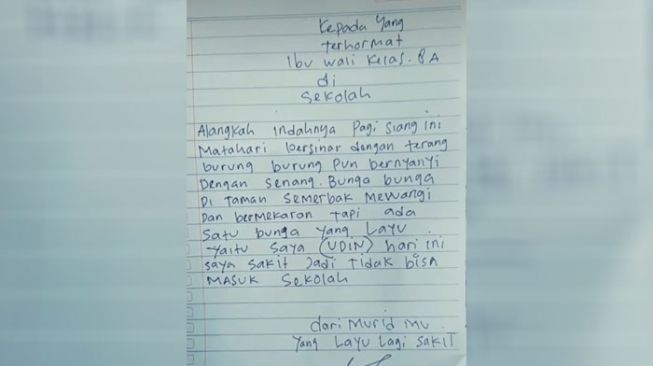 Kepada Yang
terhormat
Ibu wali Kelas. 8A
di
Sekolah
Alangkah Indahnya Pagi siang ini
Matahari bersinar dengan terang
burung burung pun bernyanyi
Dengan senang. Bunga bunga
Di taman semerbak mewangi
Dan bermekaran tapi ada
satu bunga yang Layu
yaitu saya (UDIN) hari ini
saya sakit Jadi tidak bisa
MASUK Sekolah
dari Murid Mu
Yang LAYU Lagi SAKIT